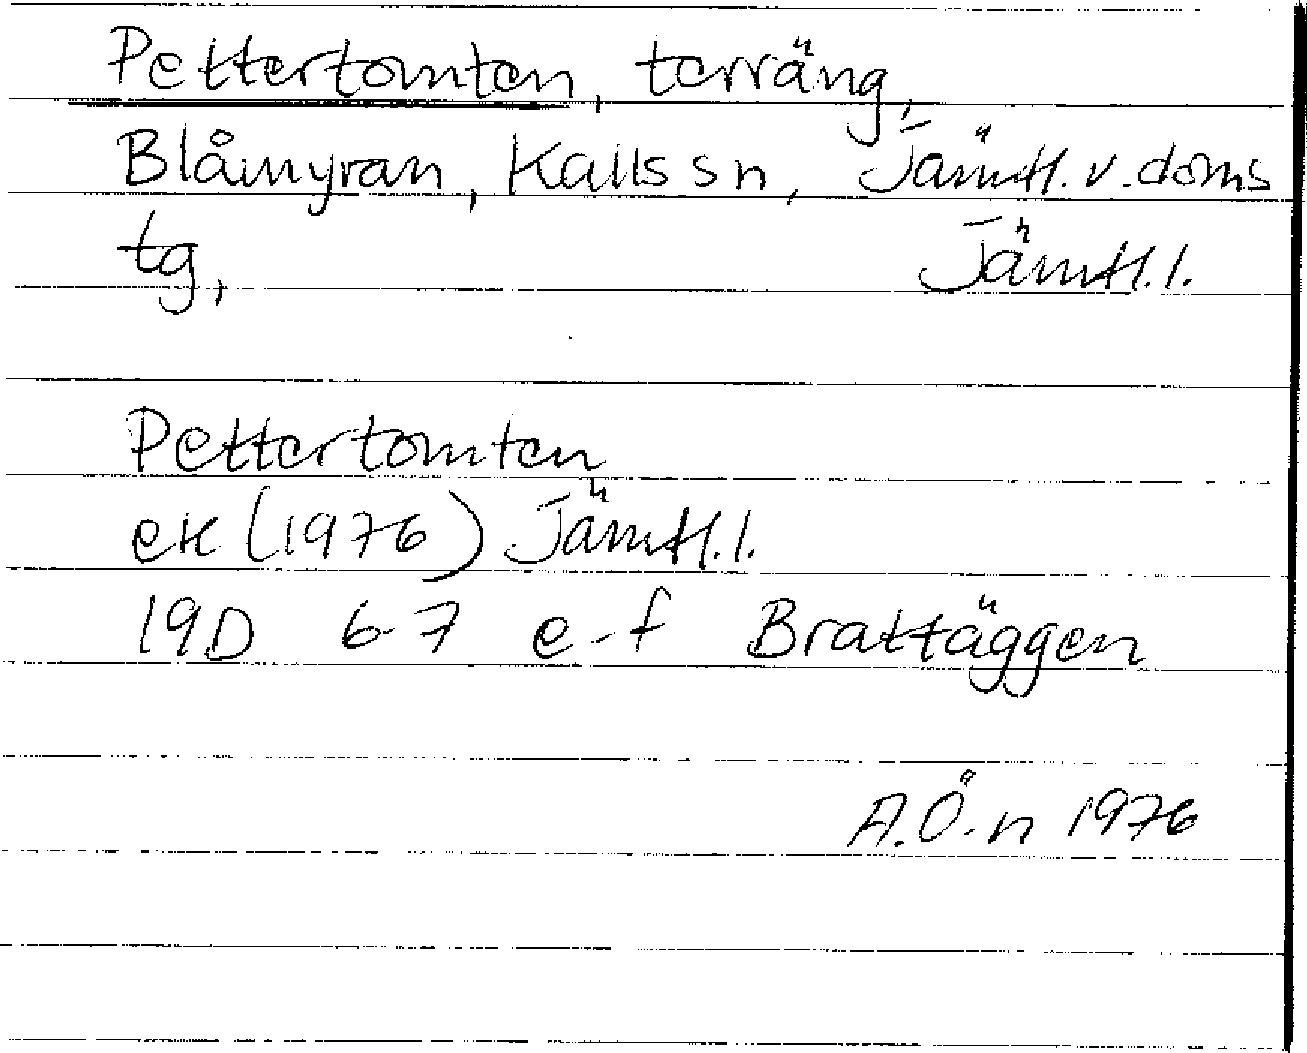 Pettertomten, terräng,
Blåmyran, Kalls sn, Jämtl. v. doms
tg, Jämtl. l.
Pettertomten
ek (1976) Jämtl. l.
19D 6-7 e-f Brattäggen
A.Ö-n 1976